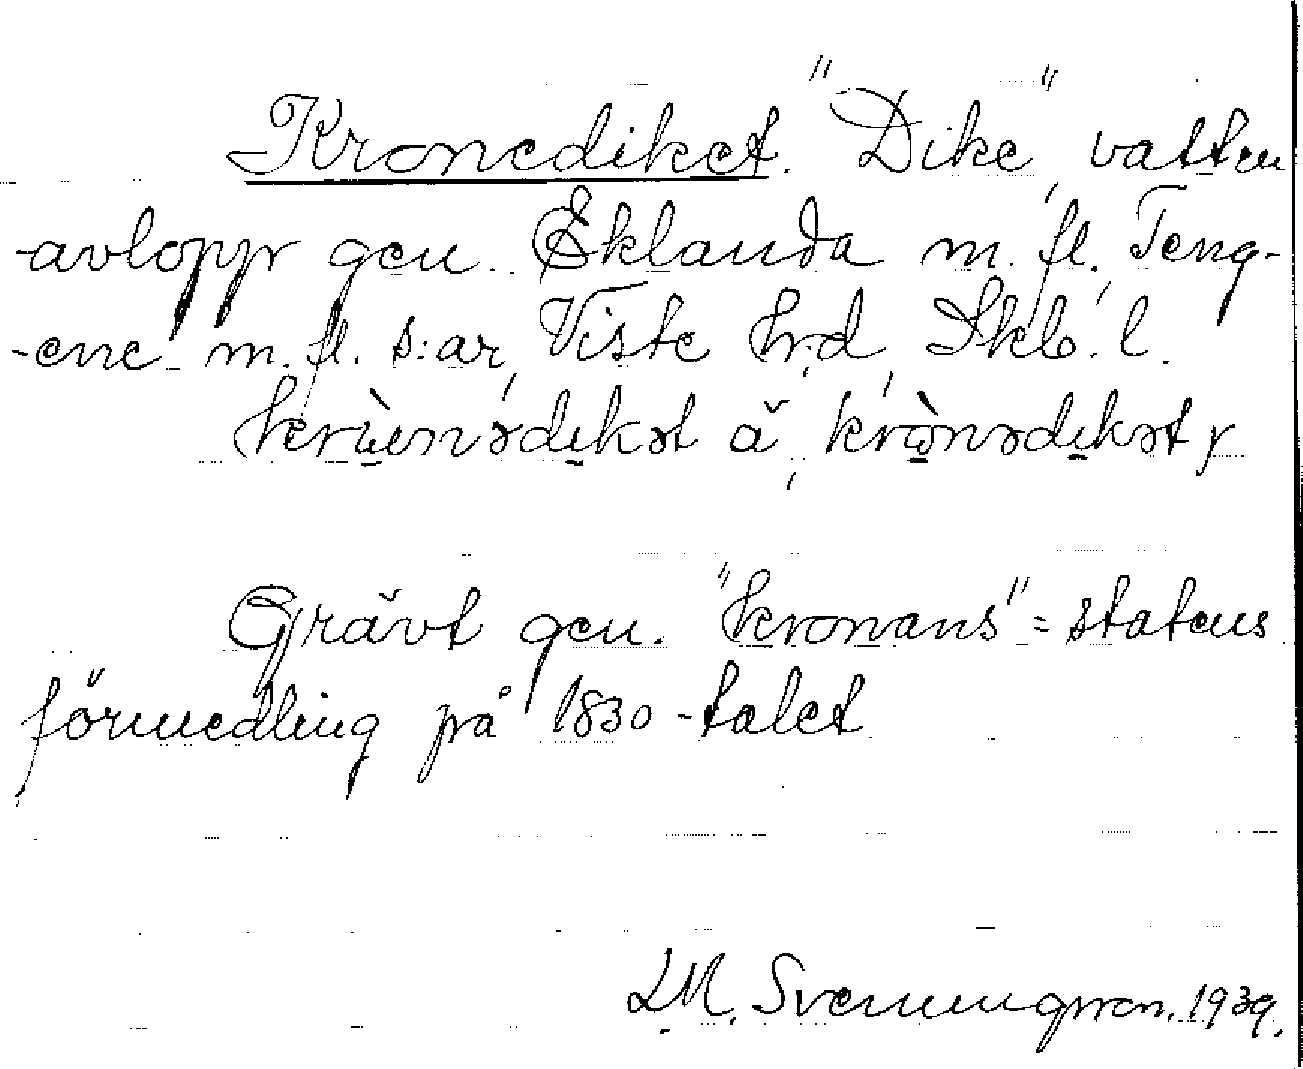 Kronediket. "Dike", vatten
-avlopp gen. Eklanda m. fl., Teng-
-ene m. fl. s:ar, Viste hrd, Skb. l.
kruenədikət ä, krònədikət,
Grävt gen. "kronans" = statens
förmedling på 1830-talet
LM. Svenungsson. 1939.